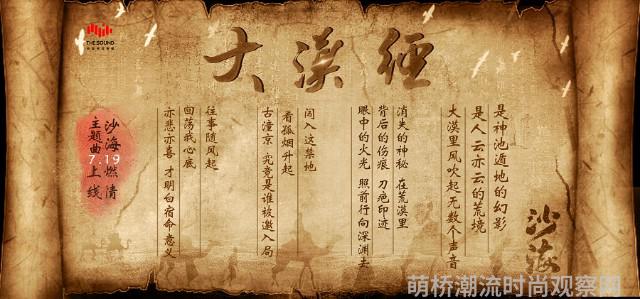 THE SOUND
大漠經
是神池遁地的幻影
是人云亦云的荒境
大漠里风吹起无数个声音
消失的神秘 在荒漠里
背后的伤痕 刀疤印迹
眼中的火光 照前行向深渊去
闯入这禁地
看孤烟升起
古潼京 究竟是谁被邀入局
往事随风起
回荡我心底
亦悲亦喜 才明白宿命意义
沙海燃情
主题曲 7.19 上线
沙海
萌桥潮流时尚观察网